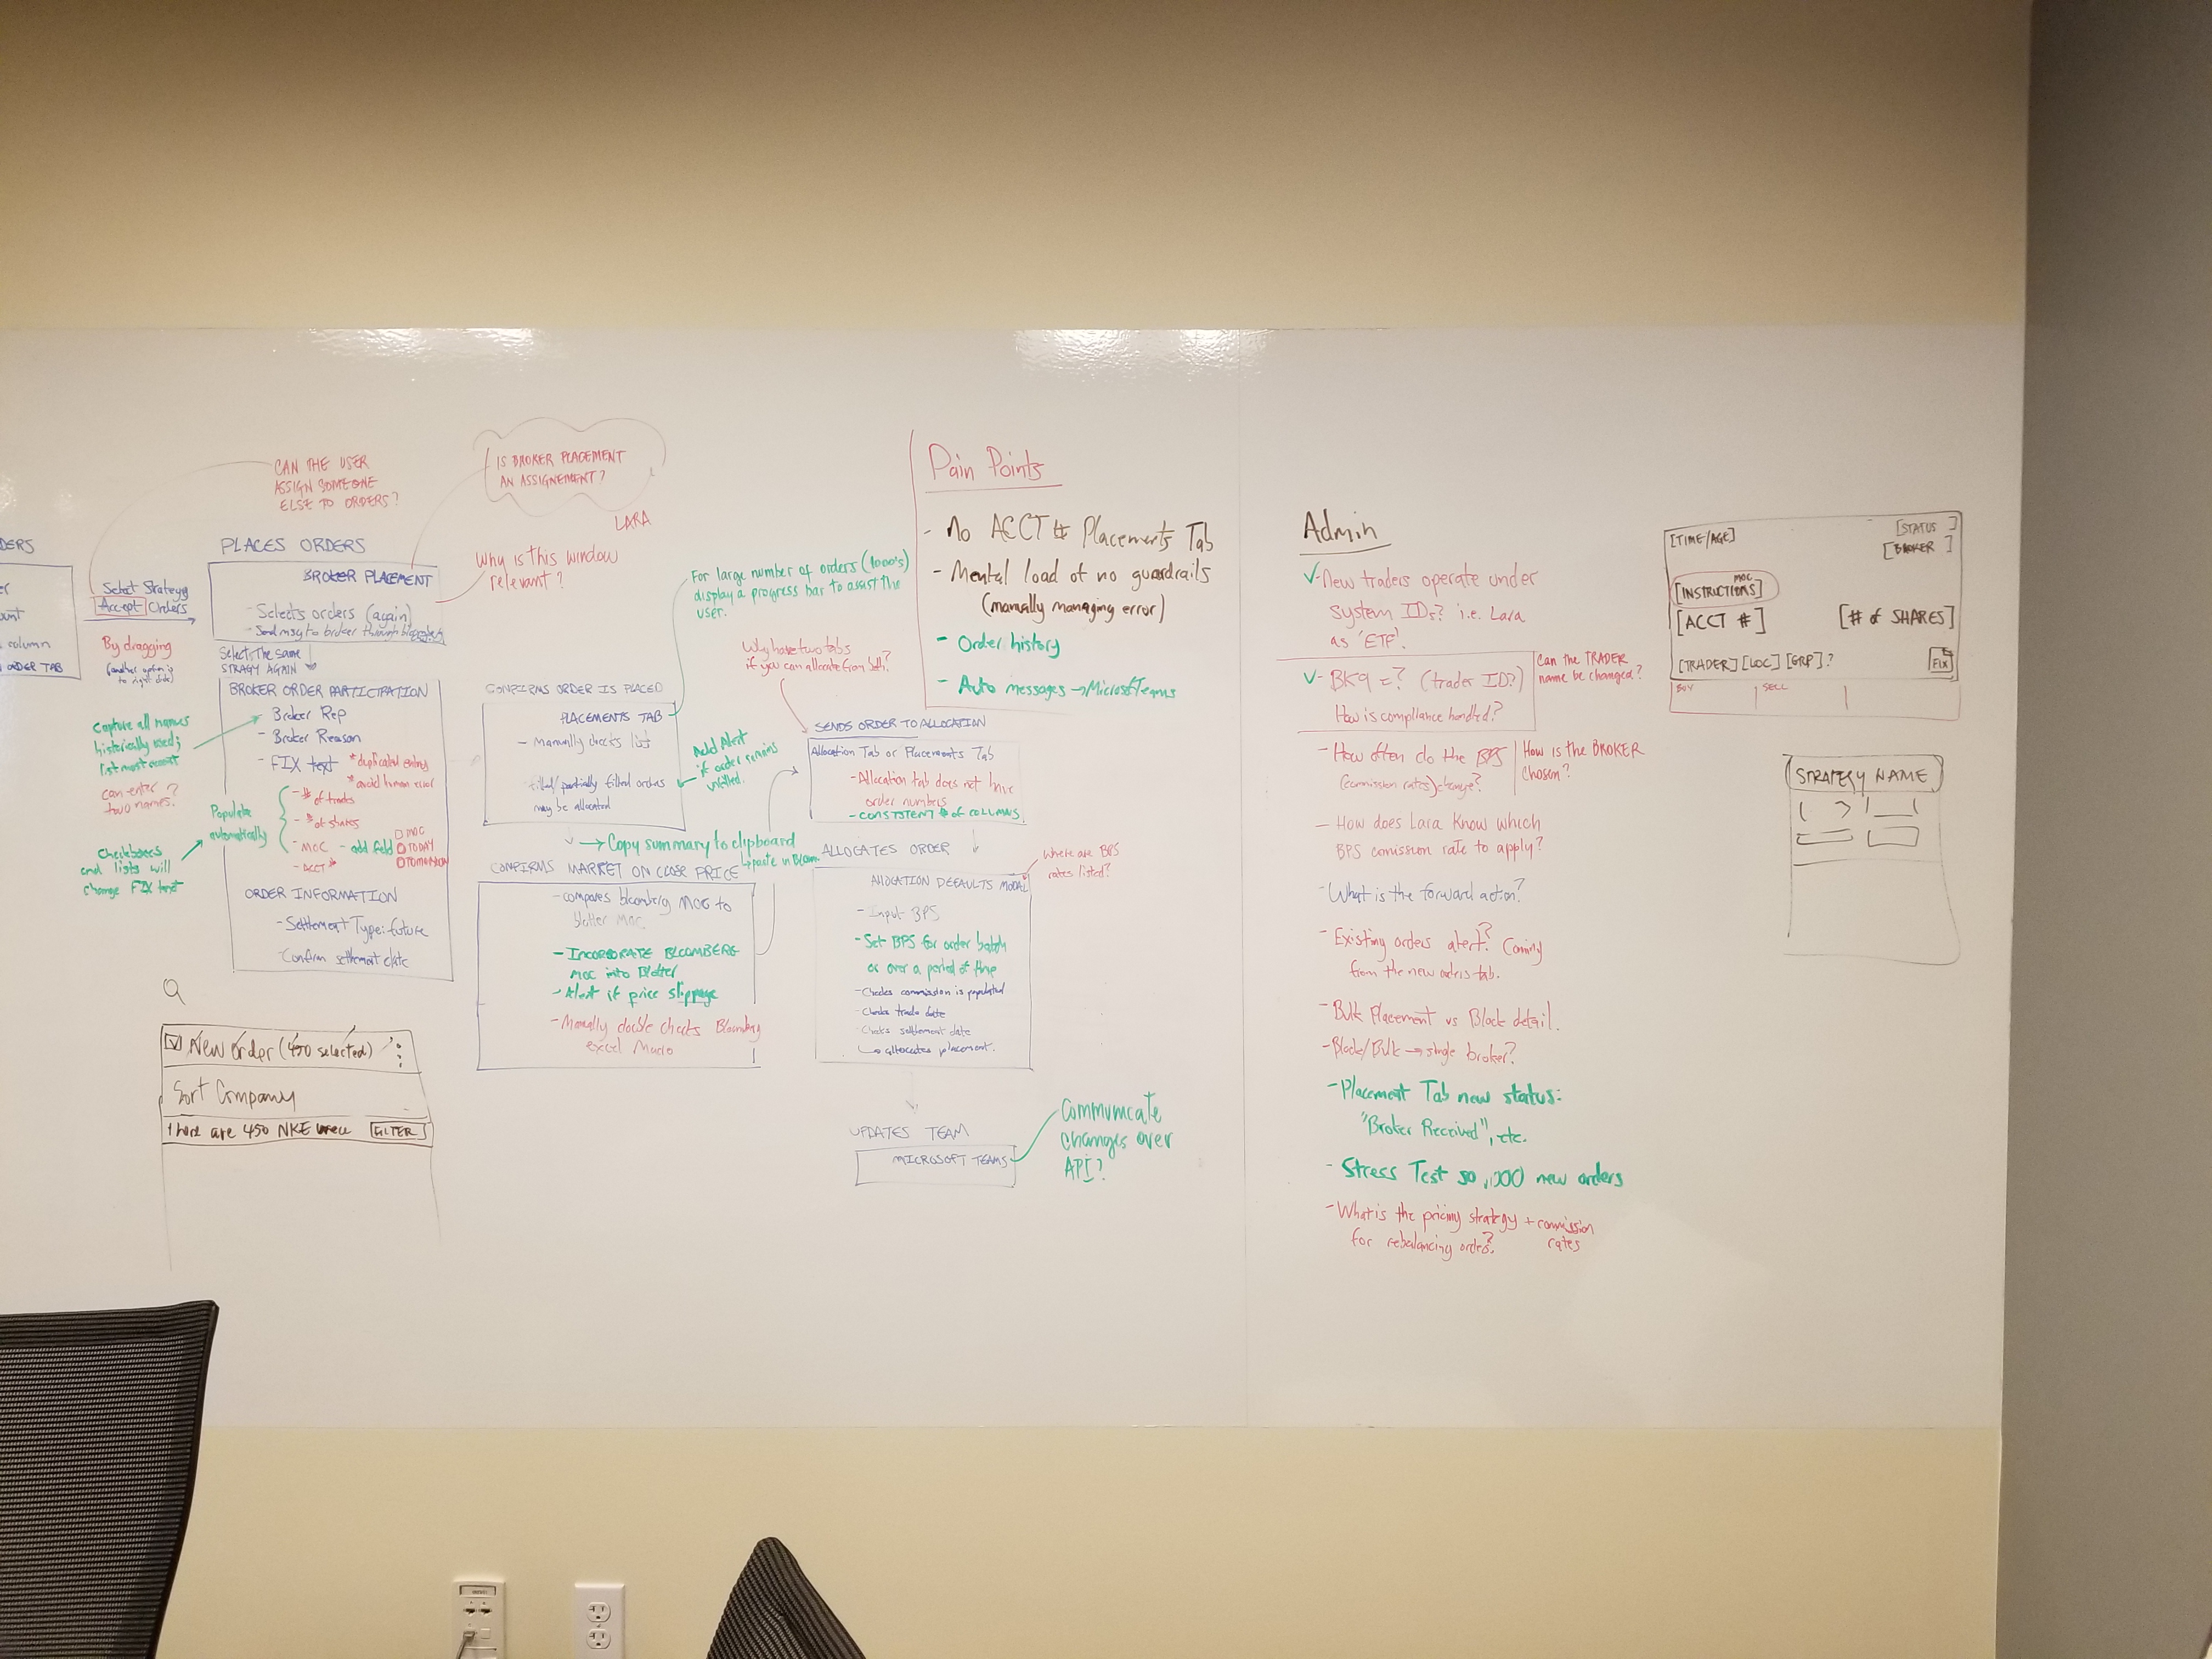 CAN THE USER
ASSIGN SOMEONE
ELSE TO ORDERS?
IS BROKER PLACEMENT
AN ASSIGNEMENT?
LARA
DERS
column
ORDER TAB
Select Strategy
Accept Orders
By dragging
(another option is
to right click)
PLACES ORDERS
BROKER PLACEMENT
- Selects orders (again)
- Send msg to broker through
Why is this window
relevant?
Select The same
STRAGY AGAIN
BROKER ORDER PARTICIPATION
- Broker Rep
- Broker Reason
- FIX text
* duplicated entry
* avoid human error
- # of trades
- # of shares
- MOC - add field
MOC
TODAY
TOMORROW
- ACCT #
Capture all names
historically used;
list most recent
can enter
two names?
Populate
automatically
Checkboxes
and lists will
change FIX text
ORDER INFORMATION
- Settlement Type: future
- Confirm settlement date
New order (450 selected)
Sort Company
There are 450 NKE FILTER
For large number of orders (1000's)
display a progress bar to assist the
user.
CONFIRMS ORDER IS PLACED
PLACEMENTS TAB
- Manually checks list
filled/partially filled orders
may be allocated
Add Alert
if order remains
unfilled.
→ Copy summary to clipboard
↳ paste in Bloom
CONFIRMS MARKET ON CLOSE PRICE
- compares bloomberg MOC to
blotter MOC
- INCORPORATE BLOOMBERG
MOC into Blotter
- Alert if price slippage
- Manually double checks Bloomberg
excel Macro
Why have two tabs
if you can allocate from both?
SENDS ORDER TO ALLOCATION
Allocation Tab or Placements Tab
- Allocation tab does not have
order numbers
- CONSISTENT # OF COLUMNS
ALLOCATES ORDER
ALLOCATION DEFAULTS MODAL
- Input BPS
- Set BPS for order batch
or over a period of time
- Checks commission is populated
- Checks trade date
- Checks settlement date
↳ allocates placement.
Where are BPS
rates listed?
UPDATES TEAM
MICROSOFT TEAMS
Communicate
changes over
API?
Pain Points
- No ACCT # Placements Tab
- Mental load of no guardrails
(manually managing error)
- Order history
- Auto messages → Microsoft Teams
Admin
✓ - New traders operate under
system IDs? i.e. Lara
as 'ETF'.
✓ - BK9 = ? (trader ID?)
How is compliance handled?
Can the TRADER
name be changed?
- How often do the BPS
(commission rates) change?
How is the BROKER
chosen?
- How does Lara know which
BPS comission rate to apply?
- What is the forward action?
- Existing orders alert? Coming
from the new orders tab.
- Bulk Placement vs Block detail.
- Block/Bulk → single broker?
- Placement Tab new status:
"Broker Received", etc.
- Stress Test 50,000 new orders
- What is the pricing strategy + commission
rates
for rebalancing orders?
[TIME/AGE]
[STATUS ]
[BROKER ]
MOC
[INSTRUCTIONS]
[ACCT #]
[# of SHARES]
[TRADER] [LOC] [GRP]?
FIX
BUY
SELL
STRATEGY NAME